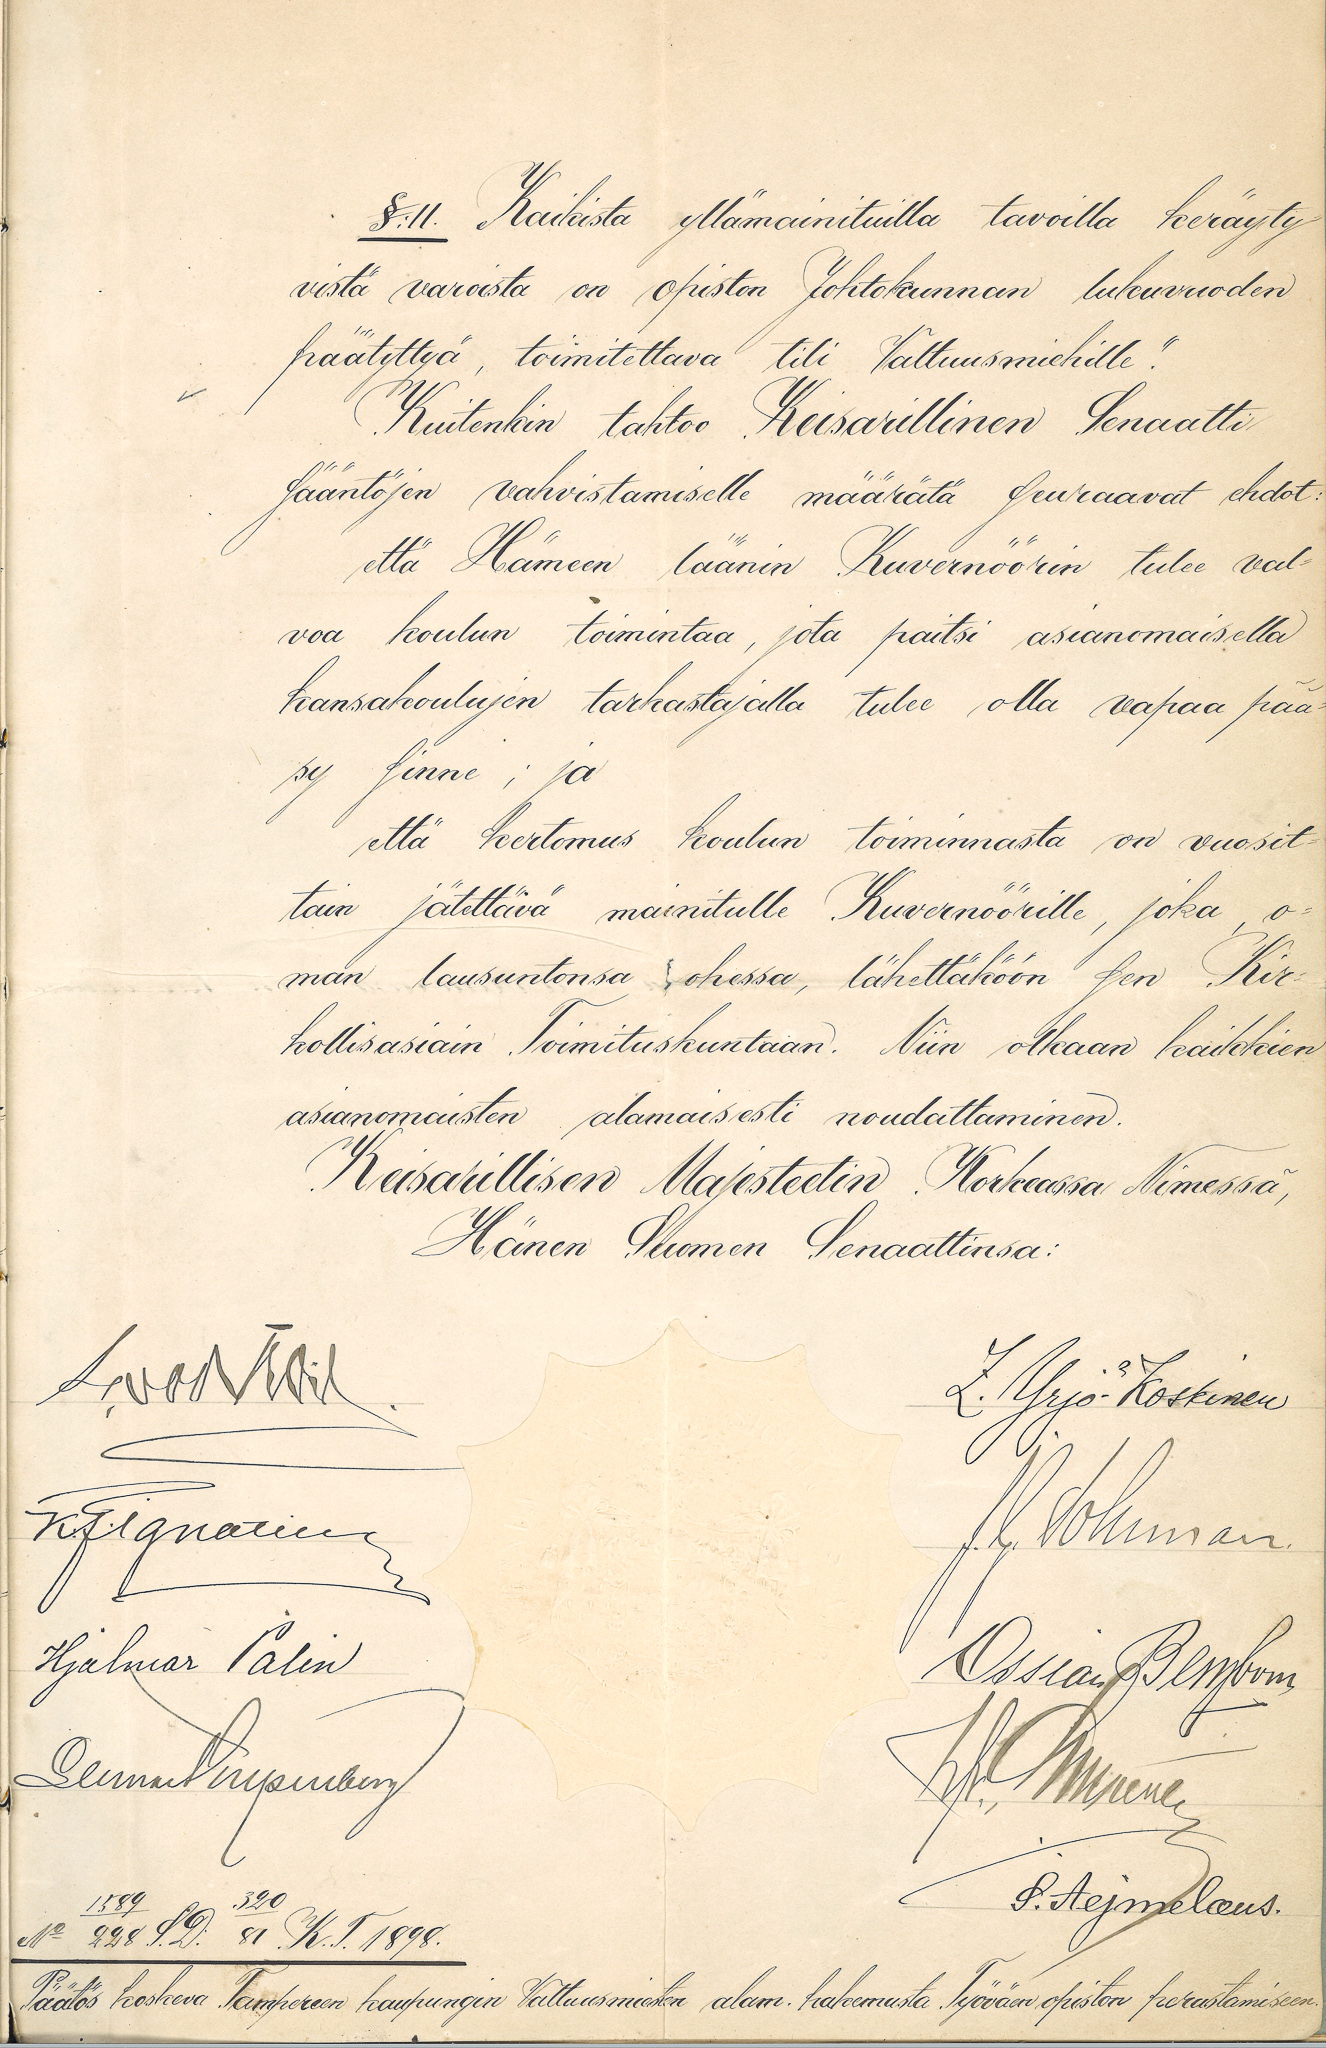 §.11. Kaikista yllämainituilla tavoilla keräyty
vistä varoista on opiston Johtokunnan lukuvuoden
päätyttyä, toimitettava tili Valtuusmiehille".
Kuitenkin tahtoo Keisarillinen Senaatti
sääntöjen vahvistamiselle määrätä seuraavat ehdot:
että Hämeen läänin Kuvernöörin tulee val-
voa koulun toimintaa, jota paitsi asianomaisella
kansakoulujen tarkastajalla tulee olla vapaa pää-
sy sinne; ja
että kertomus koulun toiminnasta on vuosit-
tain jätettävä mainitulle Kuvernöörille, joka, o-
man lausuntonsa ohessa, lähettäköön sen Kir-
kollisasiain Toimituskuntaan. Niin olkaan kaikkien
asianomaisten alamaisesti noudattaminen.
Keisarillisen Majesteetin Korkeassa Nimessä,
Hänen Suomen Senaattinsa:
Z. Yrjö-Koskinen
KF Ignatius
Hjalmar Palin
Ossian Bergbom
S. Aejmelæus.
1589 320
No 228 S.D. 81 K.T. 1898.
Päätös koskeva Tampereen kaupungin Valtuusmiesten alam. hakemusta Työväen opiston perustamiseen.